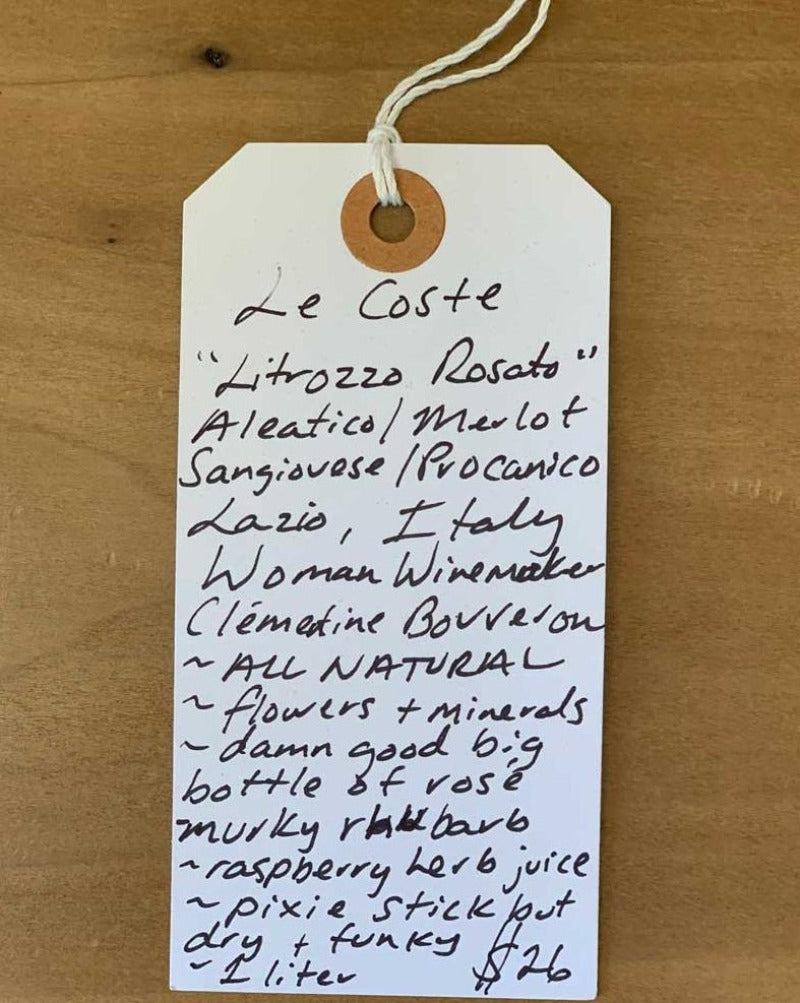 Le Coste
"Litrozzo Rosato"
Aleatico/Merlot
Sangiovese/Procanico
Lazio, Italy
Woman Winemaker
Clémentine Bouveron
~ ALL NATURAL
~ flowers + minerals
~ damn good big
bottle of rosé
murky rhubarb
~ raspberry herb juice
~ pixie stick but
dry + funky
~ 1 liter $26